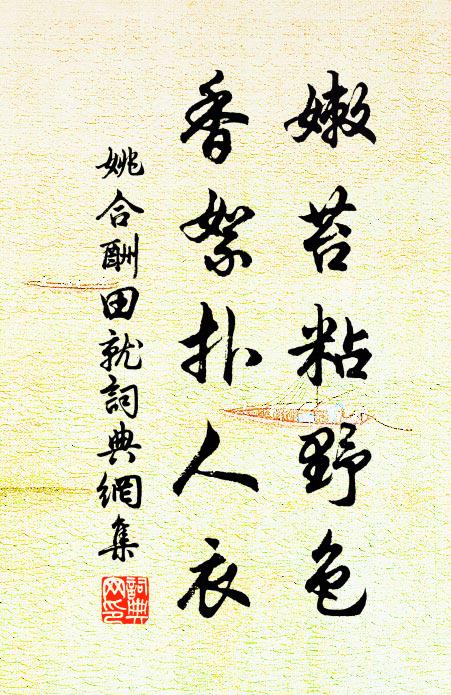 嫩苔粘野色
香絮扑人衣
姚合酬田就詞典網集
詞典网印